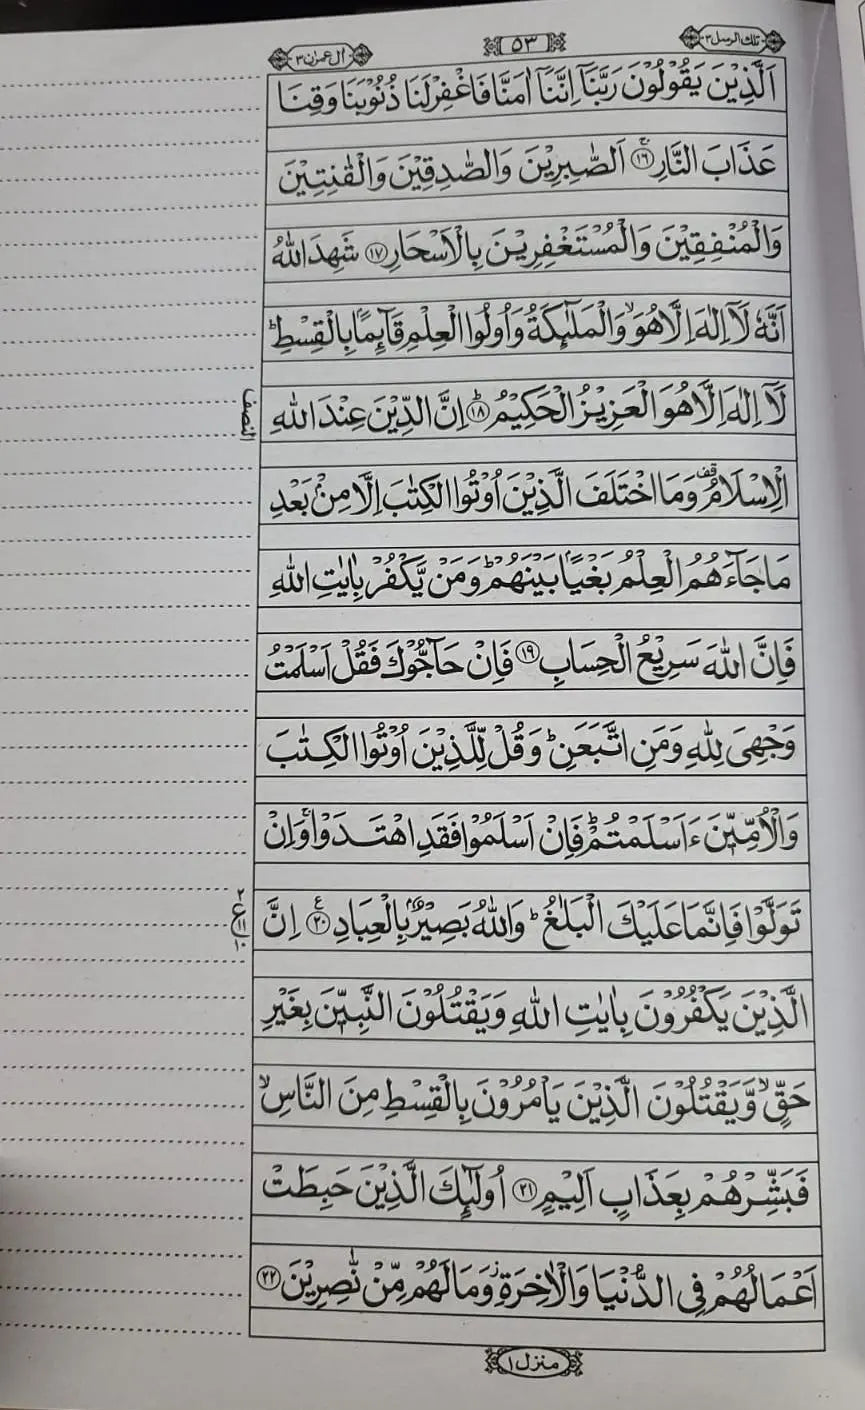 تلك الرسل ٣
٥٣
اٰل عمرٰن ٣
اَلَّذِيْنَ يَقُوْلُوْنَ رَبَّنَاۤ اِنَّنَاۤ اٰمَنَّا فَاغْفِرْ لَنَا ذُنُوْبَنَا وَقِنَا
عَذَابَ النَّارِ ۚ‏ ﴿۱۶﴾ اَلصّٰبِرِيْنَ وَالصّٰدِقِيْنَ وَالْقٰنِتِيْنَ
وَالْمُنْفِقِيْنَ وَالْمُسْتَغْفِرِيْنَ بِالْاَسْحَارِ ﴿۱۷﴾ شَهِدَ اللّٰهُ
اَنَّهٗ لَاۤ اِلٰهَ اِلَّا هُوَ ۙ وَالْمَلٰٓئِكَةُ وَاُولُوا الْعِلْمِ قَآئِمًاۢ بِالْقِسْطِ ؕ
لَاۤ اِلٰهَ اِلَّا هُوَ الْعَزِيْزُ الْحَكِيْمُ ؕ ﴿۱۸﴾ اِنَّ الدِّيْنَ عِنْدَ اللّٰهِ
النصف
الْاِسْلَامُ ۫ وَمَا اخْتَلَفَ الَّذِيْنَ اُوْتُوا الْكِتٰبَ اِلَّا مِنْۢ بَعْدِ
مَا جَآءَهُمُ الْعِلْمُ بَغْيًاۢ بَيْنَهُمْ ؕ وَمَنْ يَّكْفُرْ بِاٰيٰتِ اللّٰهِ
فَاِنَّ اللّٰهَ سَرِيْعُ الْحِسَابِ ﴿۱۹﴾ فَاِنْ حَآجُّوْكَ فَقُلْ اَسْلَمْتُ
وَجْهِىَ لِلّٰهِ وَمَنِ اتَّبَعَنِ ؕ وَقُلْ لِّلَّذِيْنَ اُوْتُوا الْكِتٰبَ
وَالْاُمِّيّٖنَ ءَاَسْلَمْتُمْ ؕ فَاِنْ اَسْلَمُوْا فَقَدِ اهْتَدَوْا ۚ وَاِنْ
تَوَلَّوْا فَاِنَّمَا عَلَيْكَ الْبَلٰغُ ؕ وَاللّٰهُ بَصِيْرٌۢ بِالْعِبَادِ ﴿۲۰﴾ اِنَّ
٢
ع
١١
١٠
الَّذِيْنَ يَكْفُرُوْنَ بِاٰيٰتِ اللّٰهِ وَيَقْتُلُوْنَ النَّبِيّٖنَ بِغَيْرِ
حَقٍّ ۙ وَّيَقْتُلُوْنَ الَّذِيْنَ يَاْمُرُوْنَ بِالْقِسْطِ مِنَ النَّاسِ ۙ
فَبَشِّرْهُمْ بِعَذَابٍ اَلِيْمٍ ﴿۲۱﴾ اُولٰٓئِكَ الَّذِيْنَ حَبِطَتْ
اَعْمَالُهُمْ فِى الدُّنْيَا وَالْاٰخِرَةِ ۫ وَمَا لَهُمْ مِّنْ نّٰصِرِيْنَ ﴿۲۲﴾
منزل ١